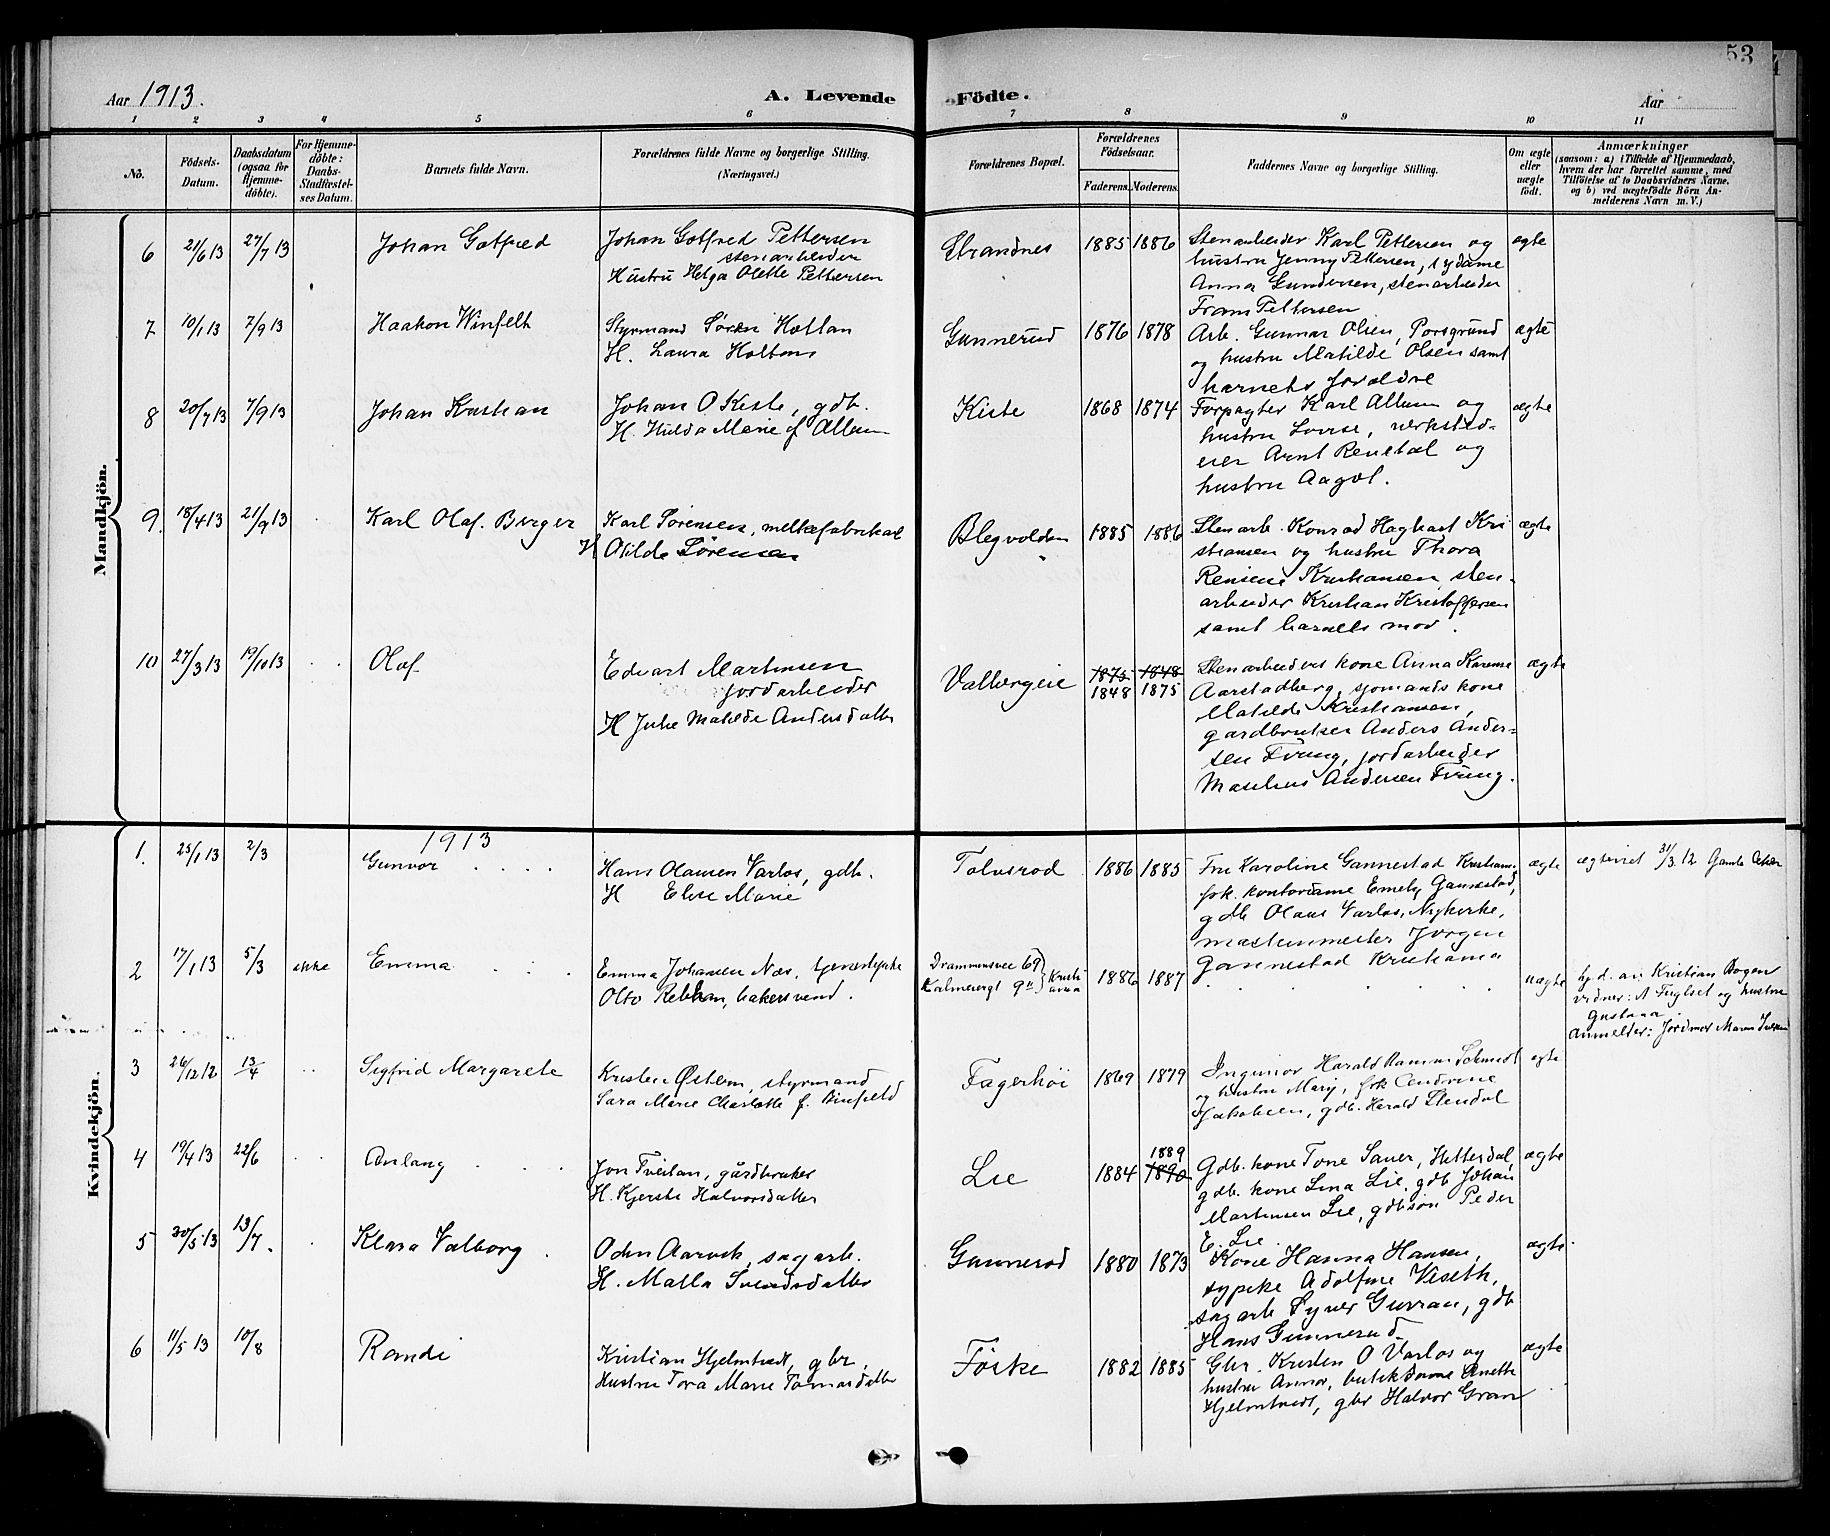 53
Aar 1913.
A. Levende Födte.
Aar
1 2 3 4 5 6 7 8 9 10 11
No.
Födsels-Datum.
Daabsdatum (ogsaa for Hjemme-döbte).
For Hjemme-döbte: Daabs-Stadfæstel-ses Datum.
Barnets fulde Navn.
Forældrenes fulde Navne og borgerlige Stilling.
(Næringsvei.)
Forældrenes Bopæl.
Forældrenes Födselsaar.
Faderens. Moderens.
Faddernes Navne og borgerlige Stilling.
Om ægte eller uægte födt.
Anmærkninger
(saasom: a) i Tilfælde af Hjemmedaab,
hvem der har forrettet samme, med
Tilföielse af to Daabsvidners Navne,
og b) ved uægtefödte Börn An-
melderens Navn m. V.)
Mandkjön.
6 21/6 13 27/7 13 Johan Gotfred
Johan Gotfred Pettersen
stenarbeider
Hustru Helga Olette Pettersen
Strandnes 1885 1886
Stenarbeider Karl Pettersen og
hustru Jenny Pettersen, sydame
Anna Gundersen, stenarbeider
Fram Pettersen
ægte
7 10/1 13 7/9 13 Haakon Winfelt
Styrmand Sören Holtan
H. Laura Holtans
Gunnerud 1876 1878
Arb. Gunnar Olsen, Porsgrund
og hustru Matilde Olsen samt
barnets forældre
ægte
8 20/7 13 7/9 13 Johan Kristian
Johan O Kiste, gdb.
H. Hulda Marie f Allum
Kiste 1868 1874
Forpagter Karl Allum og
hustru Lovise, verksted-
eier Arnt Renetal og
hustru Aagot.
ægte
9. 18/4 13 21/9 13 Karl Olaf Birger
Karl Sörensen, melkefabrikarb
H Otilde Sörensen
Blegvolden 1885 1886
Stenarb. Konrad Hagbart Kri
stiansen og hustru Thora
Rensine Kristiansen, sten-
arbeider Kristian Kristoffersen
samt barnets mor.
ægte
10 27/3 13 19/10 13 Olaf
Edvart Martinsen
jordarbeider
H Julie Matilde Andersdatter
Valbergeie 1875 1848
1848 1875
Stenarbeiders kone Anna Karense
Aarstadberg, sjomands kone
Matilde Kristiansen,
gardbruker Anders Ander-
sen Tveing, jordarbeider
Andersen Tveing.
ægte
Kvindekjön.
1913
1. 25/1 13 2/3 Gunvor
Hans Olausen Varlos, gdb.
H Elise Marie
Tolvsrod 1886 1885
Fru Karoline Gannestad Kristiania,
frk. kontordame Emely Gannestad,
gdb Olaus Varlos, Nykirke,
maskinmester Jorgen
Gannestad Kristiania
ægte
ægteviet 31/3 12 Gamle Aker
2 17/1 13 5/3 ikke Emma
Emma Johansen Næs, tjenestepike
Otto Rebhan, bakersvend.
Drammensvei 69
Kalmeiergt 9 II } Kristiania
1886 1887
uægte
hj.d. av Kristian Bogen
vidner: A Fuglset og hustru
Gustava.
Anmelder: Jordmor Maren
3 26/12 12 13/4 Sigfrid Margarete
Kristen Østern, styrmand
Sara Marie Charlotte f. Binfield
Fagerhöi 1869 1879
Ingeniör Harald Ramm Schmidt
og hustru Mary, frk Andrine
Jakobsen, gdb. Harald Stendal
ægte
4 19/4 13 22/6 Anlaug
Jon Tveitan, gårdbruker
H. Kjersti Halvorsdatter
Lie 1884 1889
1890
Gdb. kone Tone Sauer, Hitterdal,
gdb. kone Lina Lie, gdb Johan
Martinsen Lie, gdb.søn Peder
E. Lie.
ægte
5 30/5 13 13/7. Klara Valborg
Oden Aarvik, sagarb.
H. Malla Svendsdatter
Gunnerod 1880 1873
Kone Hanna Hansen,
sypike Adolfine Viseth,
sagarb Syver Gurran, gdb
Hans Gunnerud.
ægte
6 11/5 13 10/8 Randi
Kristian Hjelmtvedt, gbr,
Hustru Tora Marie Tomasdatter
Föske 1882 1885
Gbr. Kristen O Varlos og
hustru Annar, butikdame Anette
Hjelmtvedt, gbr Halvor Gran
ægte